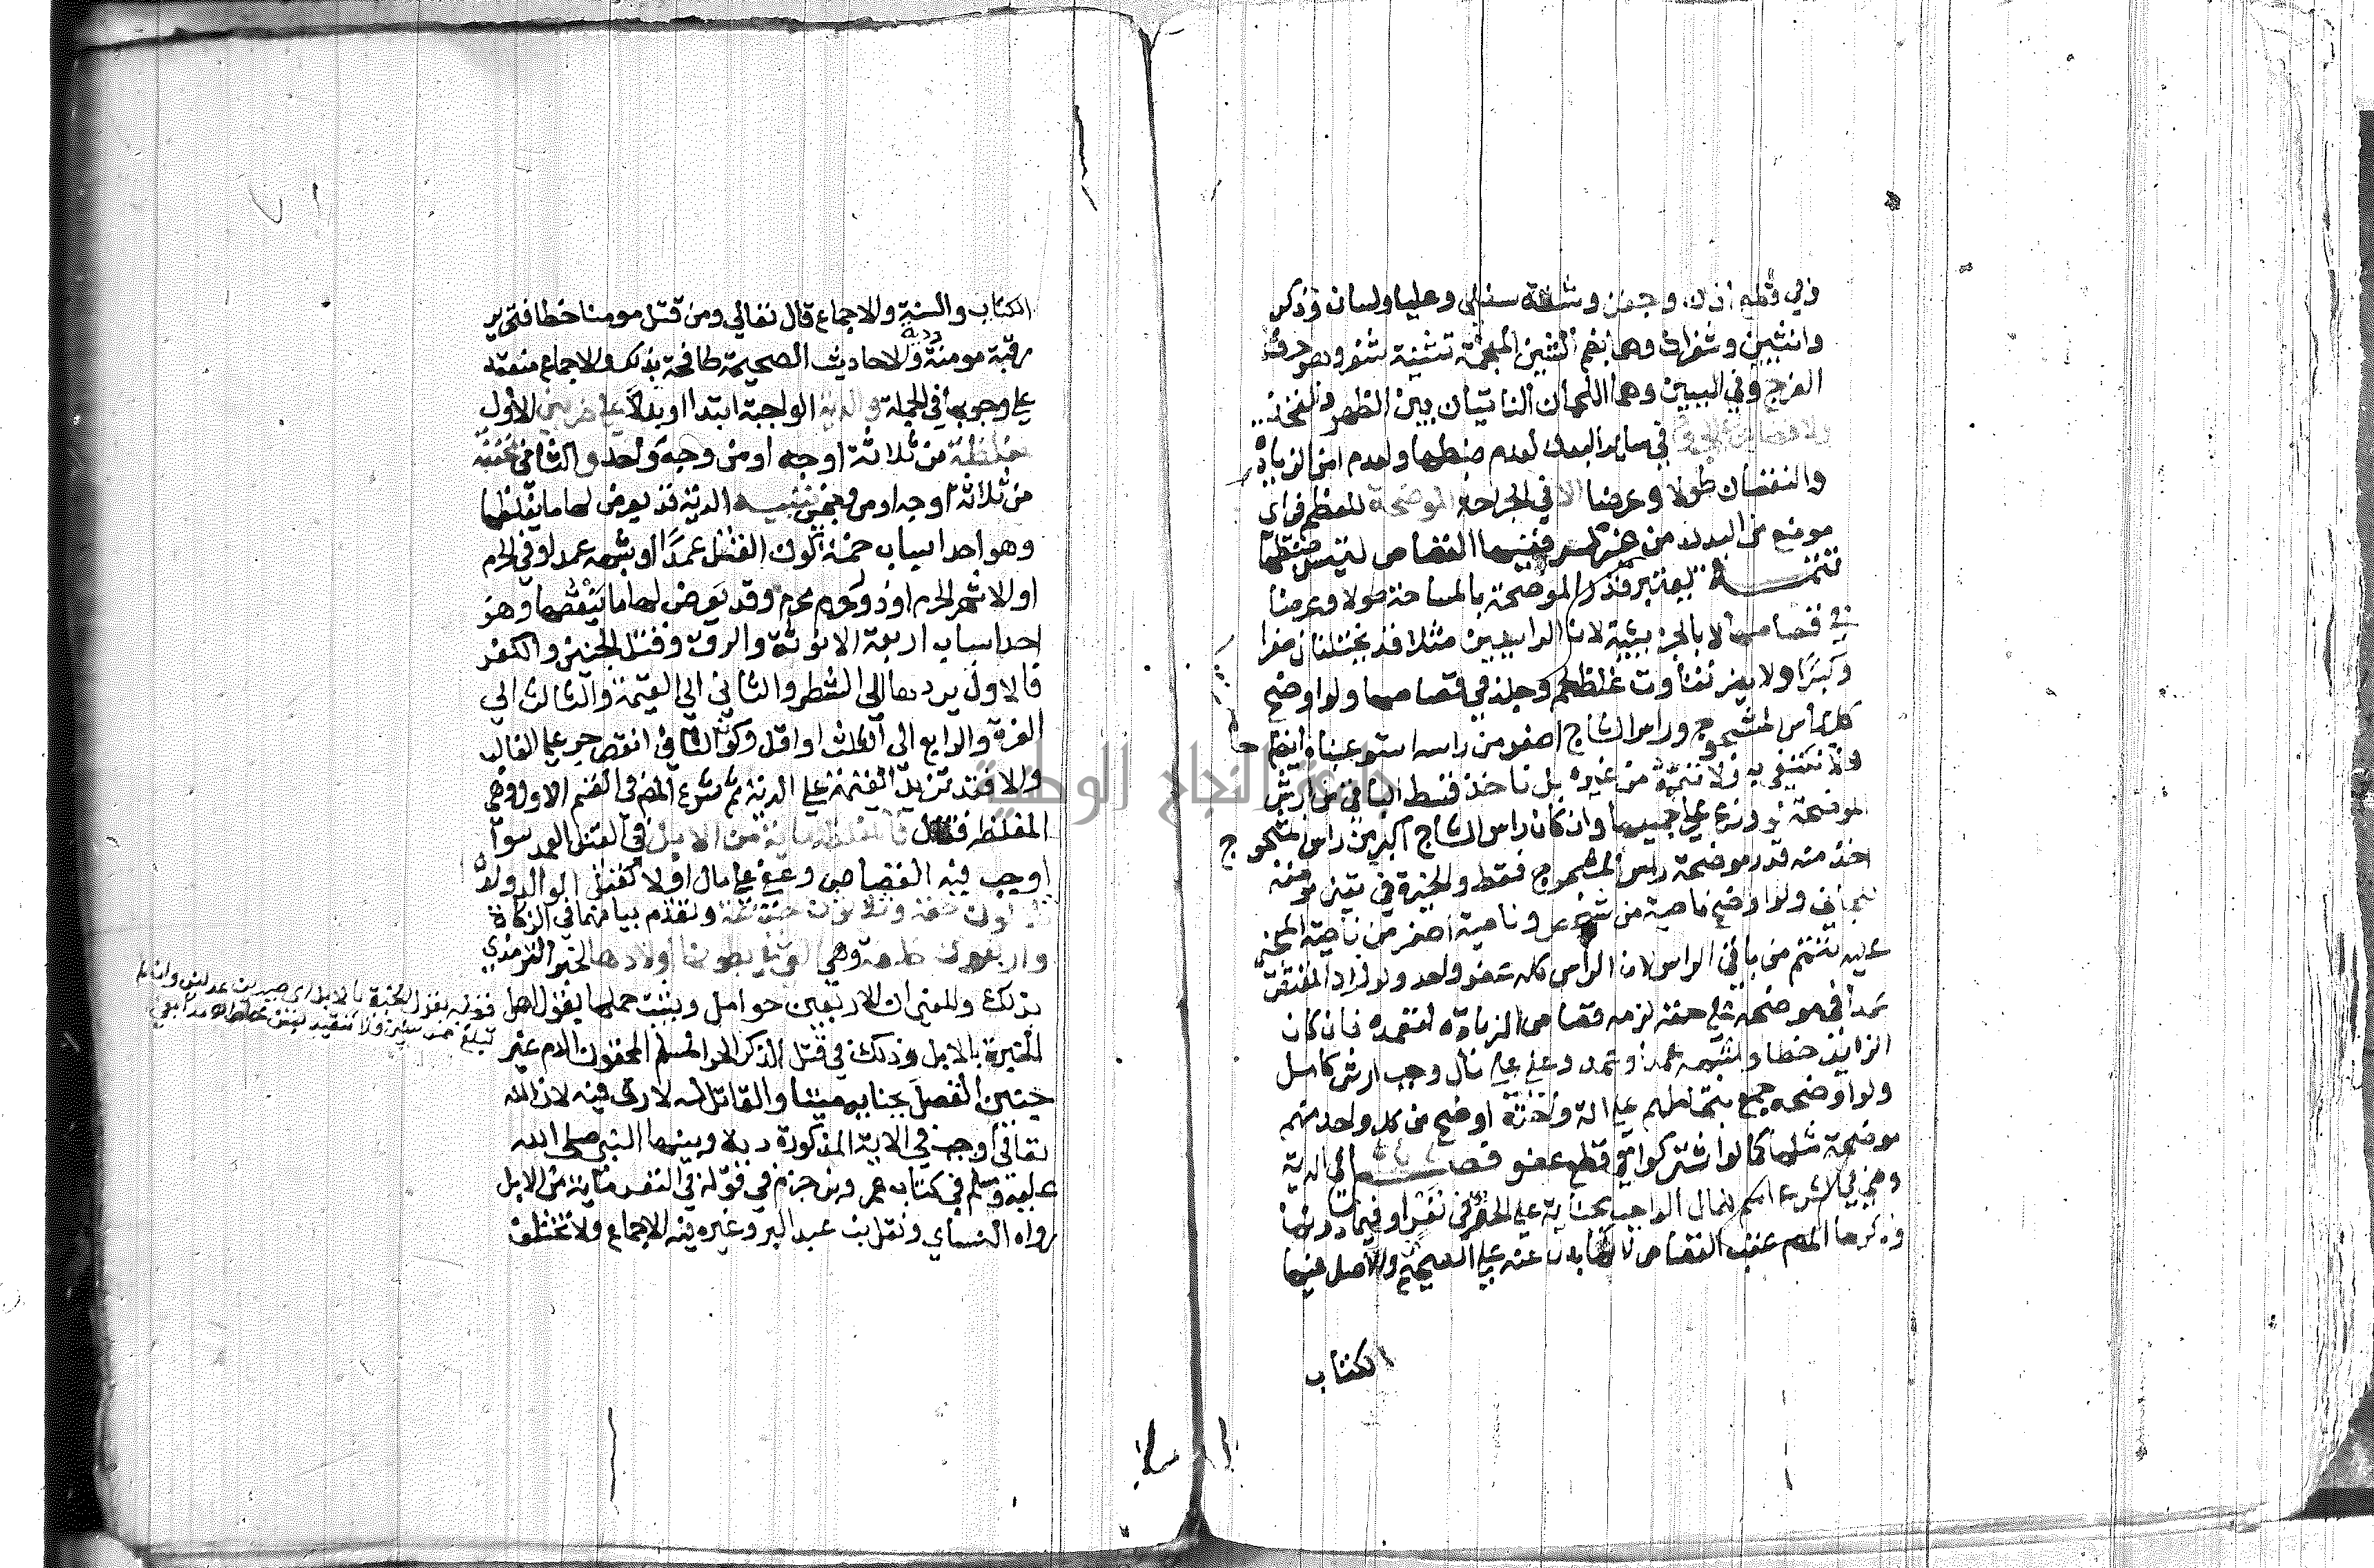 في قطع اذن وجفن وشفة سفلى وعليا ولسان وذكر
وانثيين وشفران وهما بضم الشين المعجمة تثنية شفر وهو حرف
الفرج وفي اليين وهما اللحمان الناتيان بين الظهر والفخذ
ولا قصاص في الجروح في ساير البدن لعدم ضبطها ولعدم امن الزيادة
والنقصان طولا وعرضا الا في الجراحة الموضحة للعظم في اي
موضع من البدن من غير كسر ففيها القصاص لتيسر ضبطها
تتمة يعتبر قدر الموضحة بالمساحة طولا وعرضا
في قصاصها لا بالجزئية لان الراسين مثلا قد يختلفان صغرا
وكبرا ولا يضر تفاوت غلظ لحم وجلد في قصاصها ولو اوضح
كل راس المشجوج وراس الشاج اصغر من راسه استوعبناه ايضاحا
ولا نكتفي به ولا نتممه من غيره بل ناخذ قسط الباقي من ارش
الموضحة لو وزع على جميعها وان كان راس الشاج اكبر من راس المشجوج
اخذ منه قدر موضحة راس المشجوج فقط والخيرة في تعين موضعه
للجاني ولو اوضح ناصية من شخص وناصيته اصغر من ناصية المجني
عليه تتمم من باقي الراس لان الراس كله عضو واحد ولو زاد المقتص
عمدا في موضحته على حقه لزمه قصاص الزيادة لتعمده فان كان
الزايد خطا او شبه عمد او عمدا وعفي على مال وجب ارش كامل
ولو اوضحه جمع بتحاملهم على الة واحدة اوضح من كل واحد منهم
موضحة مثلها كما لو اشتركوا في قطع عضو فصل في الدية
وهي في الشرع اسم للمال الواجب بجناية على الحر في نفس او فيما دونها
وذكرها المصنف عقب القصاص لانها بدل عنه على الصحيح والاصل فيها
الكتاب
الكتاب والسنة والاجماع قال تعالى ومن قتل مومنا خطا فتحرير
رقبة مومنة ودية والاحاديث الصحيحة طافحة بذلك والاجماع منعقد
على وجوبها في الجملة والدية الواجبة ابتدا او بدلا على ضربين الاول
مغلظة من ثلاثة اوجه او من وجه واحد والثاني مخففة
من ثلاثة اوجه او من وجهين تنبيه الدية قد يعرض لها ما يغلظها
وهو احد اسباب خمسة كون القتل عمدا او شبه عمد او في الحرم
او الاشهر الحرم او ذو رحم محرم وقد يعرض لها ما ينقصها وهو
احد اسباب اربعة الانوثة والرق وقتل الجنين والكفر
فالاول يردها الى الشطر والثاني الى القيمة والثالث الى
الغرة والرابع الى الثلث او اقل وكون الثاني انقص جري على الغالب
والا فقد تزيد القيمة على الدية ثم شرع المصنف في القسم الاول وهي
المغلظة فقال فالمغلظة ماية من الابل في القتل العمد سوا
اوجب فيه القصاص وعفي على مال او لا كقتل الوالد ولده
ثلاثون حقة وثلاثون جذعة وتقدم بيانهما في الزكاة
واربعون خلفة وهي التي في بطونها اولادها لخبر الترمذي
بذلك والمعنى ان الاربعين حوامل ويثبت حملها بقول اهل
الخبرة بالابل وذلك في قتل الذكر الحر المسلم المحقون الدم غير
جنين انفصل بجناية ميتا والقاتل له لا رق فيه لان الله
تعالى اوجب في الاية المذكورة دية وبينها النبي صلى الله
عليه وسلم في كتاب عمرو بن حزم في قوله في النفس ماية من الابل
رواه النساي ونقل بن عبد البر وغيره فيه الاجماع ولا تختلف